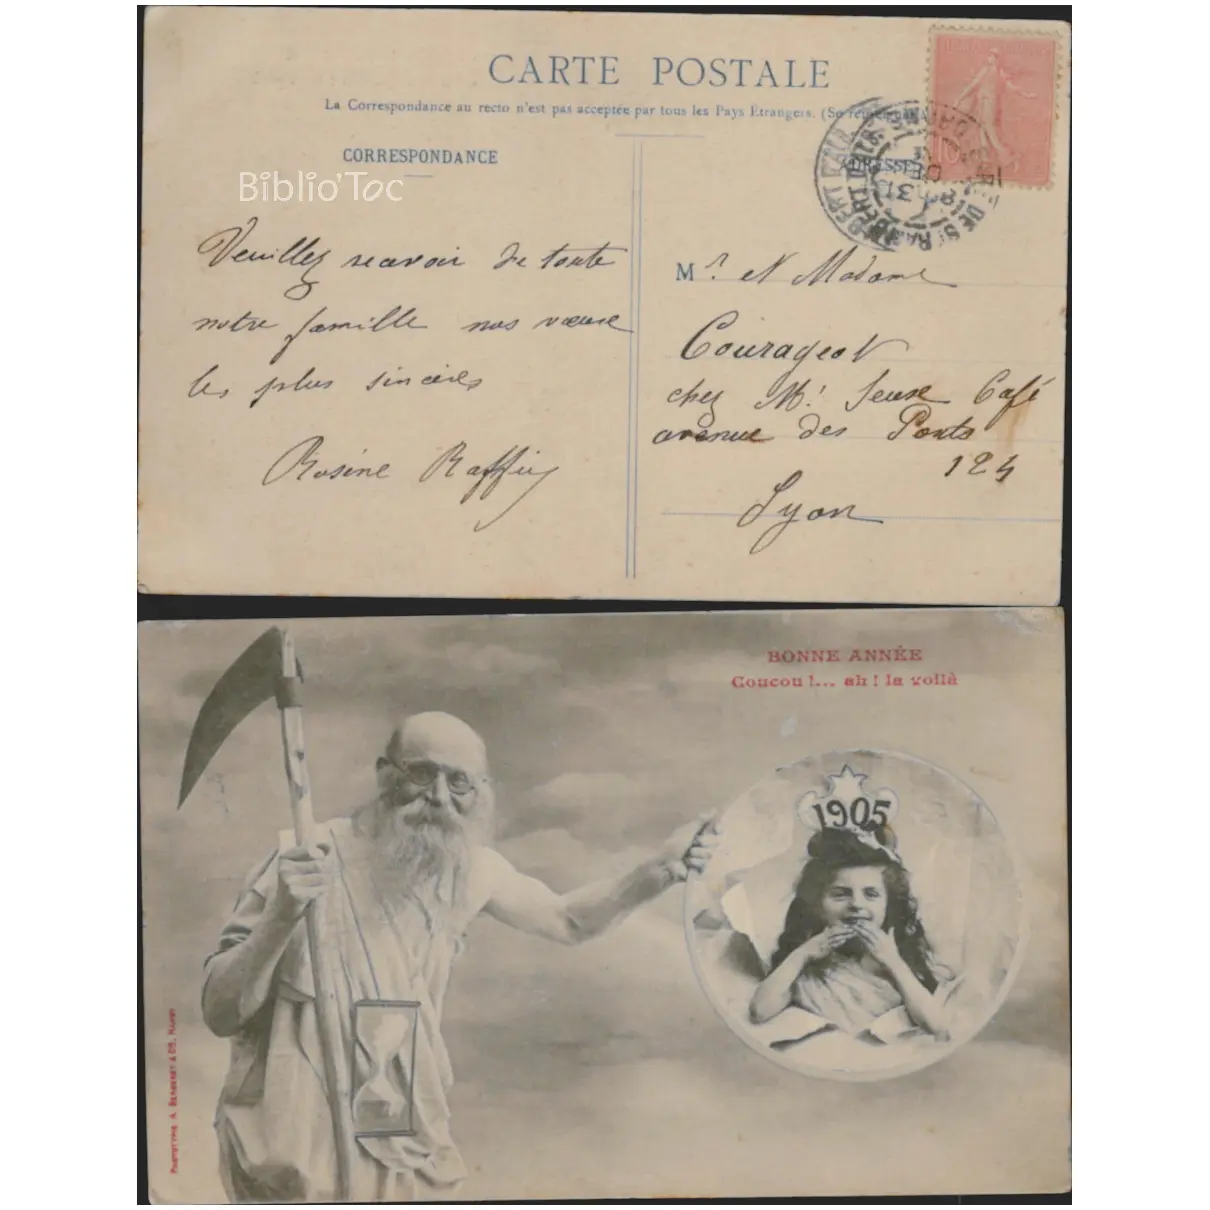 CARTE POSTALE
La Correspondance au recto n'est pas acceptée par tous les Pays Étrangers. (Se
CORRESPONDANCE
Biblio'Toc
ADRESSE
Veuillez recevoir de toute
notre famille nos vœux
les plus sincères
Rosine
Mr et Madame
Courageot
chez Mr Seuse Café
avenue des Ponts
124
Lyon
BONNE ANNÉE
Coucou !... ah ! la voilà
1905
PHOTOTYPIE A. BERGERET & Cie, NANCY